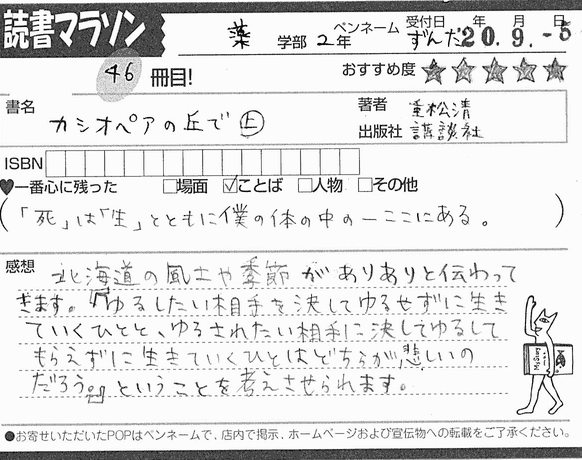 読書マラソン
薬 学部 2年 ペンネーム ずんだ 受付日 年 月 日
20.9.-5
46 冊目! おすすめ度 ★★★★★
書名 カシオペアの丘で 上
著者 重松清
出版社 講談社
ISBN
♥一番心に残った □場面 ☑ことば □人物 □その他
(「死」は「生」とともに僕の体の中の―ここにある。)
感想 北海道の風土や季節がありありと伝わって
きます。『ゆるしたい相手を決してゆるせずに生き
ていくひとと、ゆるされたい相手に決してゆるして
もらえずに生きていくひとはどちらが悲しいの
だろう。』ということを考えさせられます。
My Story
●お寄せいただいたPOPはペンネームで、店内で掲示、ホームページおよび宣伝物への転載をご了承ください。